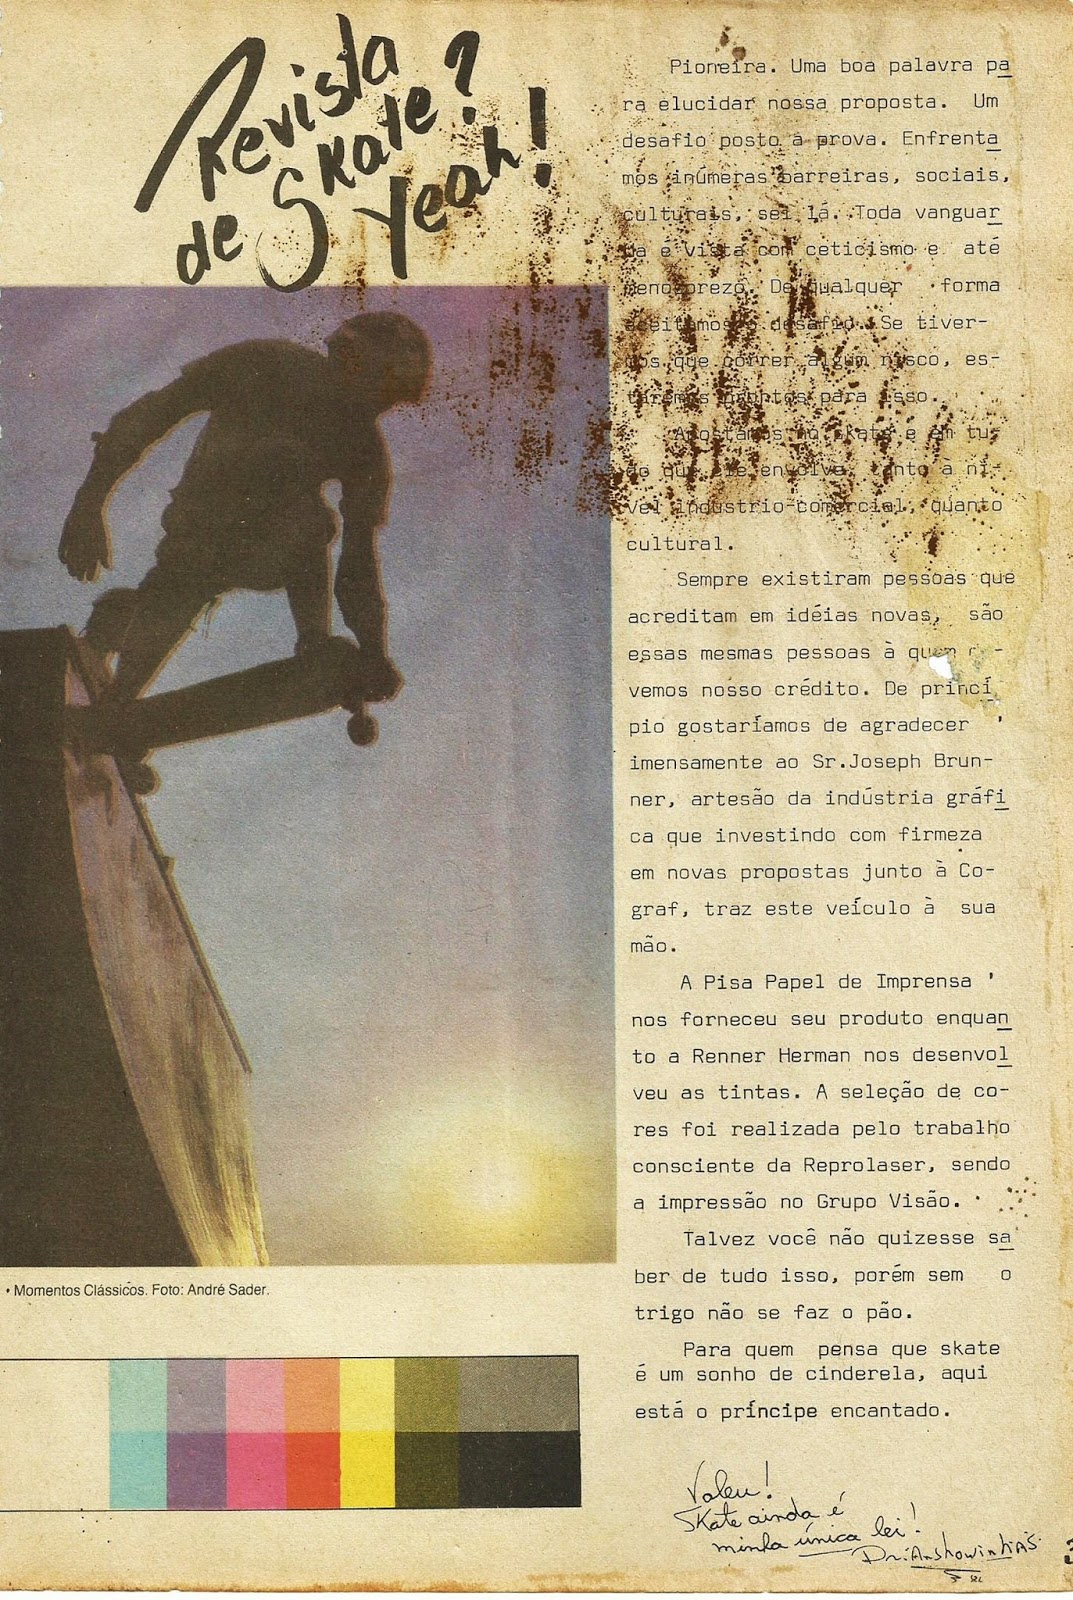 Revista
de Skate?
Yeah!
Pioneira. Uma boa palavra pa
ra elucidar nossa proposta. Um
desafio posto à prova. Enfrenta
mos inúmeras barreiras, sociais,
culturais, sei lá. Toda vanguar
da é vista com ceticismo e até
menosprezo. De qualquer forma
aceitamos o desafio. Se tiver-
mos que correr algum risco, es-
taremos prontos para isso.
Apostamos no skate e em tu-
do que ele envolve, tanto a ní-
vel industrio-comercial, quanto
cultural.
Sempre existiram pessoas que
acreditam em idéias novas, são
essas mesmas pessoas à quem
vemos nosso crédito. De princí
pio gostaríamos de agradecer '
imensamente ao Sr.Joseph Brun-
ner, artesão da indústria gráfi
ca que investindo com firmeza
em novas propostas junto à Co-
graf, traz este veículo à sua
mão.
A Pisa Papel de Imprensa '
nos forneceu seu produto enquan
to a Renner Herman nos desenvol
veu as tintas. A seleção de co-
res foi realizada pelo trabalho
consciente da Reprolaser, sendo
a impressão no Grupo Visão.
Talvez você não quizesse sa
ber de tudo isso, porém sem o
trigo não se faz o pão.
Para quem pensa que skate
é um sonho de cinderela, aqui
está o príncipe encantado.
• Momentos Clássicos. Foto: André Sader.
Valeu!
Skate ainda é
minha única lei!
Dr. Anshowinhas
3